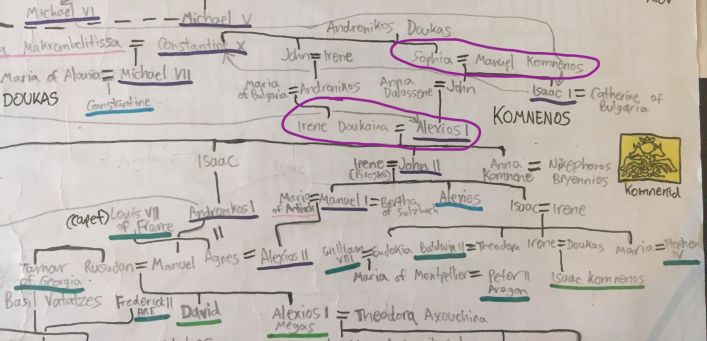 Michael VI
Michael V
Andronikos Doukas
Makrembolitissa = Constantine X
John = Irene
Sophia = Manuel Komnenos
Maria of Alania = Michael VII
Maria of Bulgaria = Andronikos
Anna Dalassene = John
Isaac I = Catherine of Bulgaria
DOUKAS
Constantine
KOMNENOS
Irene Doukaina = Alexios I
Isaac
Irene (Piroska) = John II
Anna Komnene = Nikephoros Bryennios
Komnenid
(Capet) Louis VII of France
Andronikos I
Maria of Antioch = Manuel I = Bertha of Sulzbach
Alexios
Isaac = Irene
Tamar of Georgia
Rusudan = Manuel
Agnes = Alexios II
William VIII = Eudokia
Baldwin II = Theodora
Irene = Doukas
Maria = Stephen IV
Maria of Montpellier = Peter II Aragon
Isaac Komnenos
Basil Vatatzes
Frederick II
David
Alexios I Megas = Theodora Axouchina